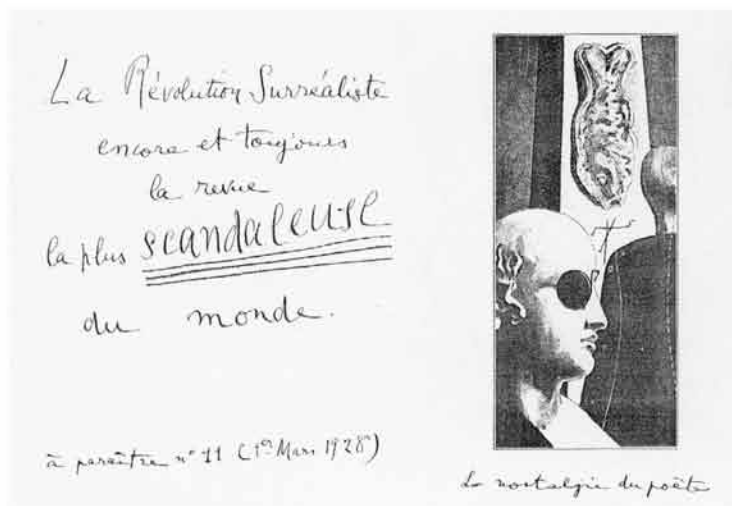 La Révolution Surréaliste
encore et toujours
la revue
la plus scandaleuse
du monde.
à paraître n° 11 (1er Mars 1928)
La nostalgie du poète